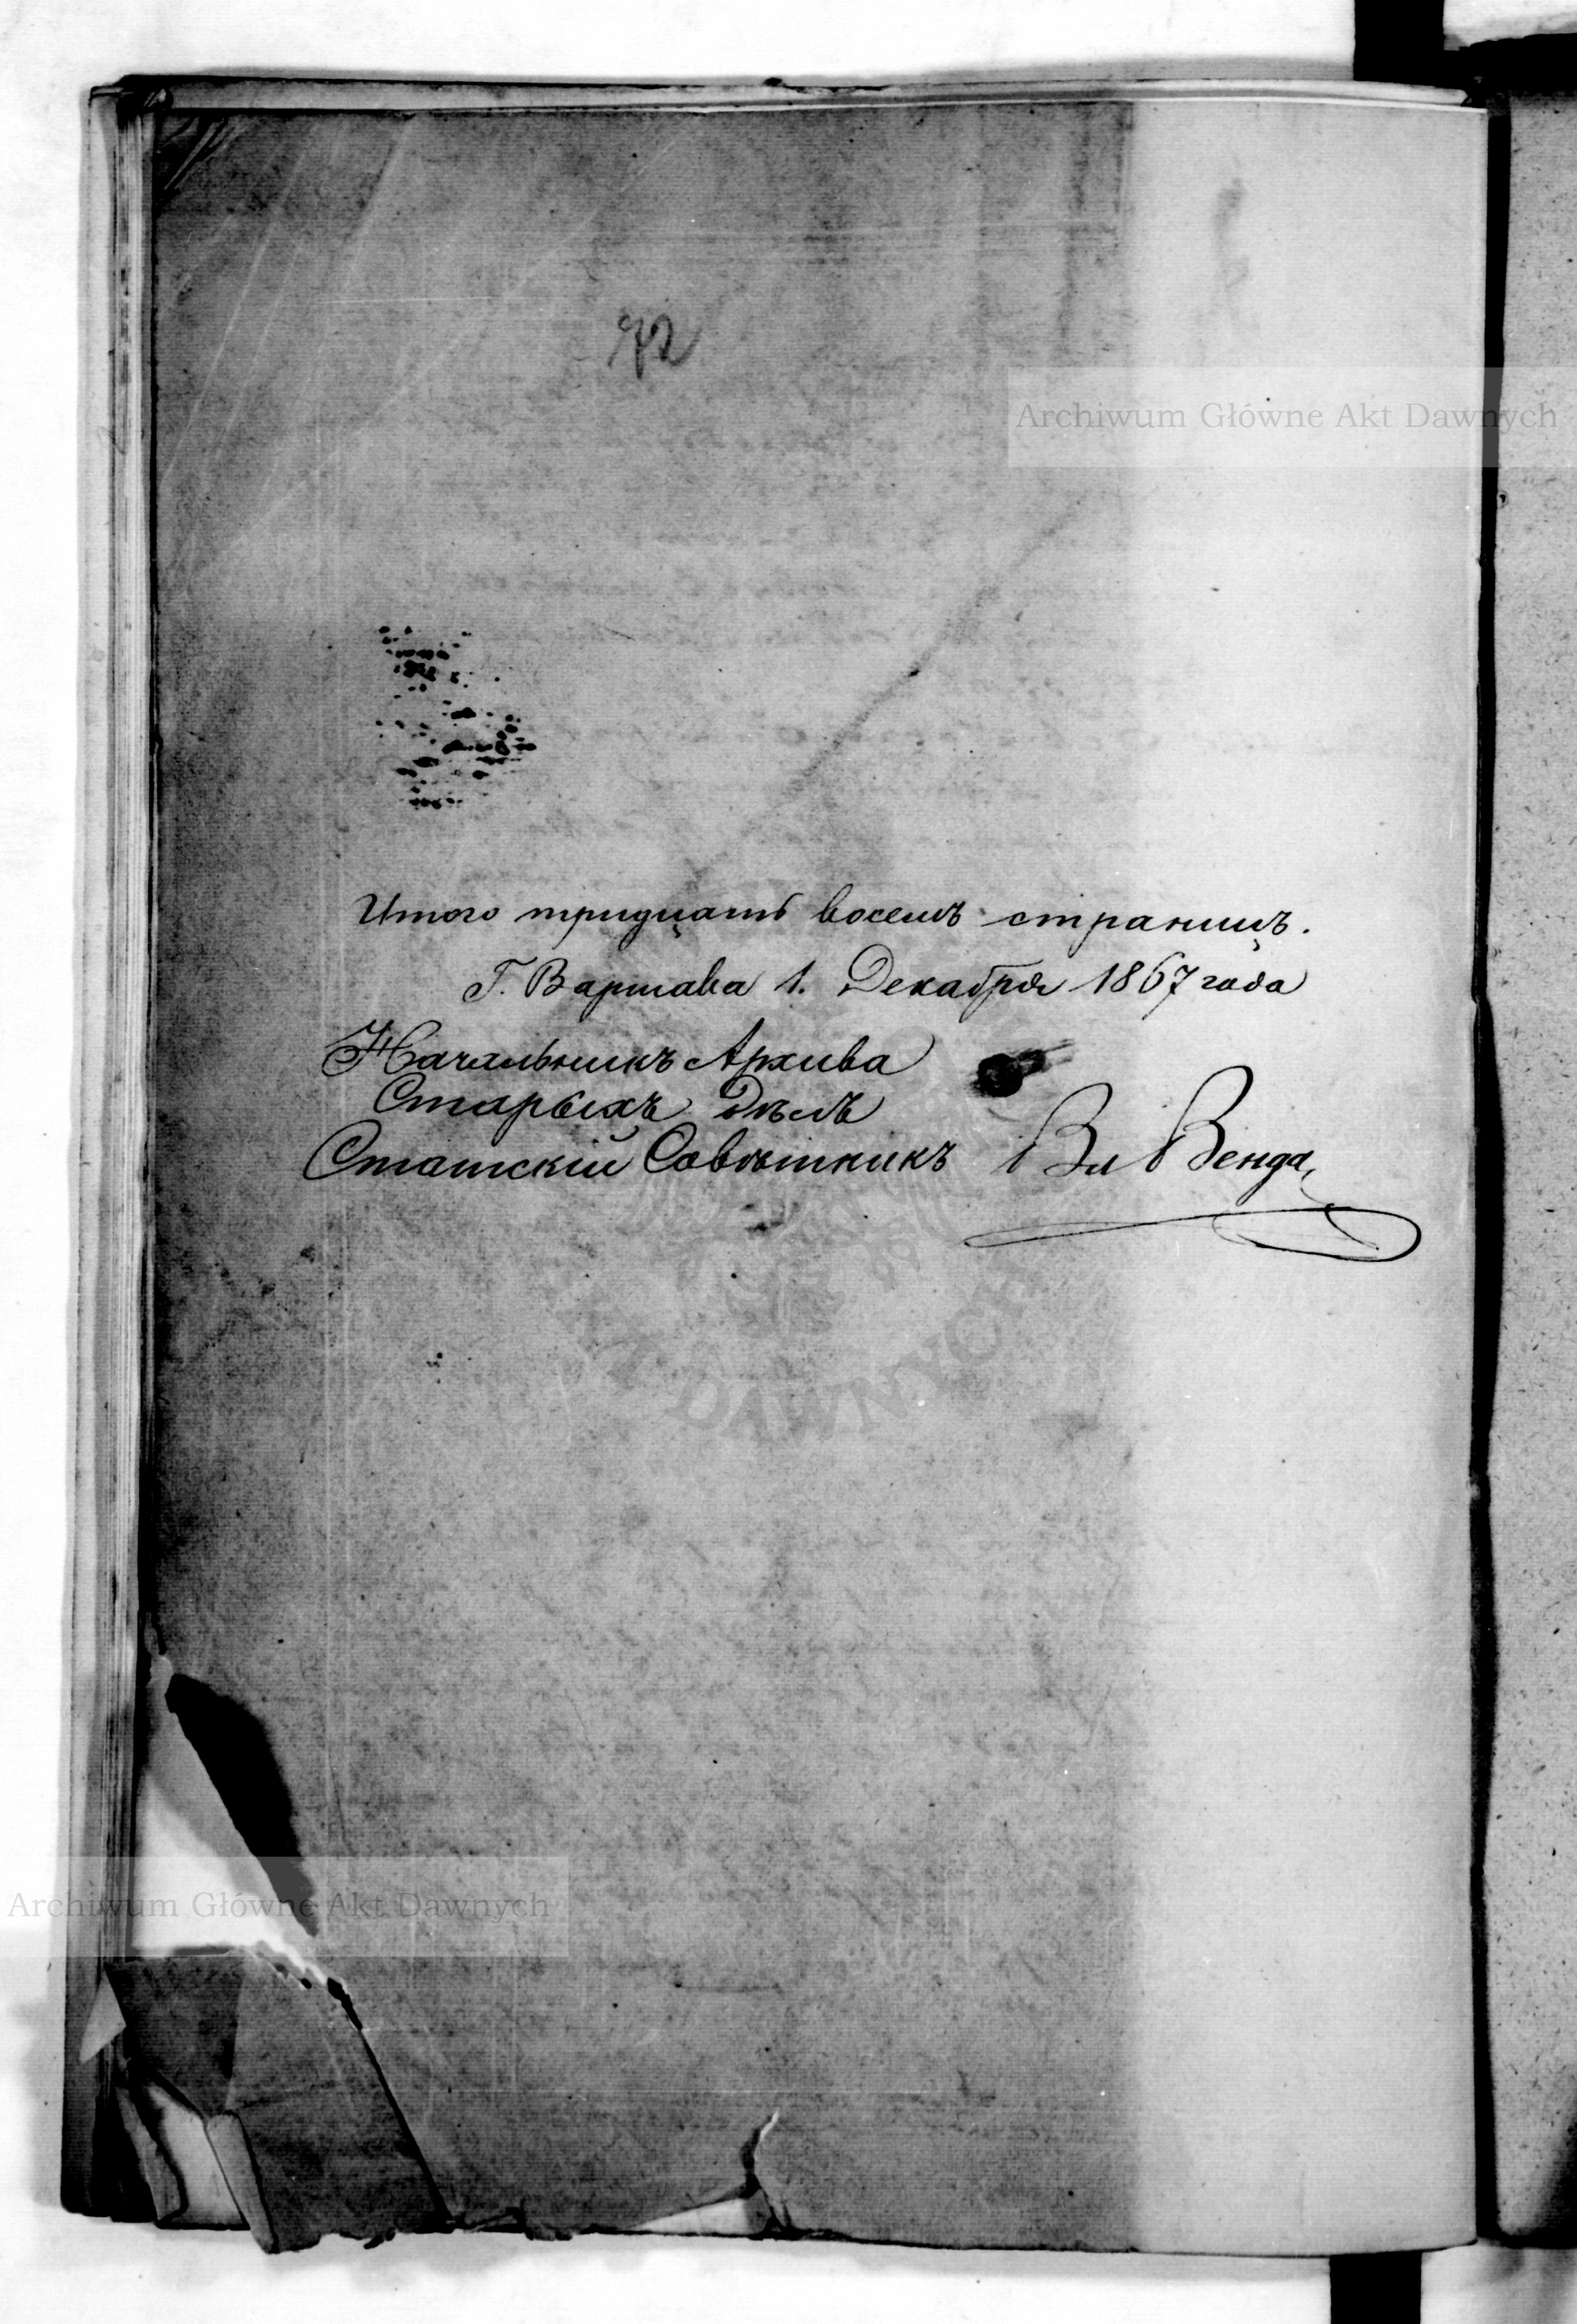 72
Archiwum Główne Akt Dawnych
Итого тридцать восемъ страницъ.
Г. Варшава 1. Декабря 1867 года
Начальникъ Архива
Старыхъ Дѣлъ
Статскій Совѣтникъ Вл Венда
DAWNYCH
Archiwum Główne Akt Dawnych